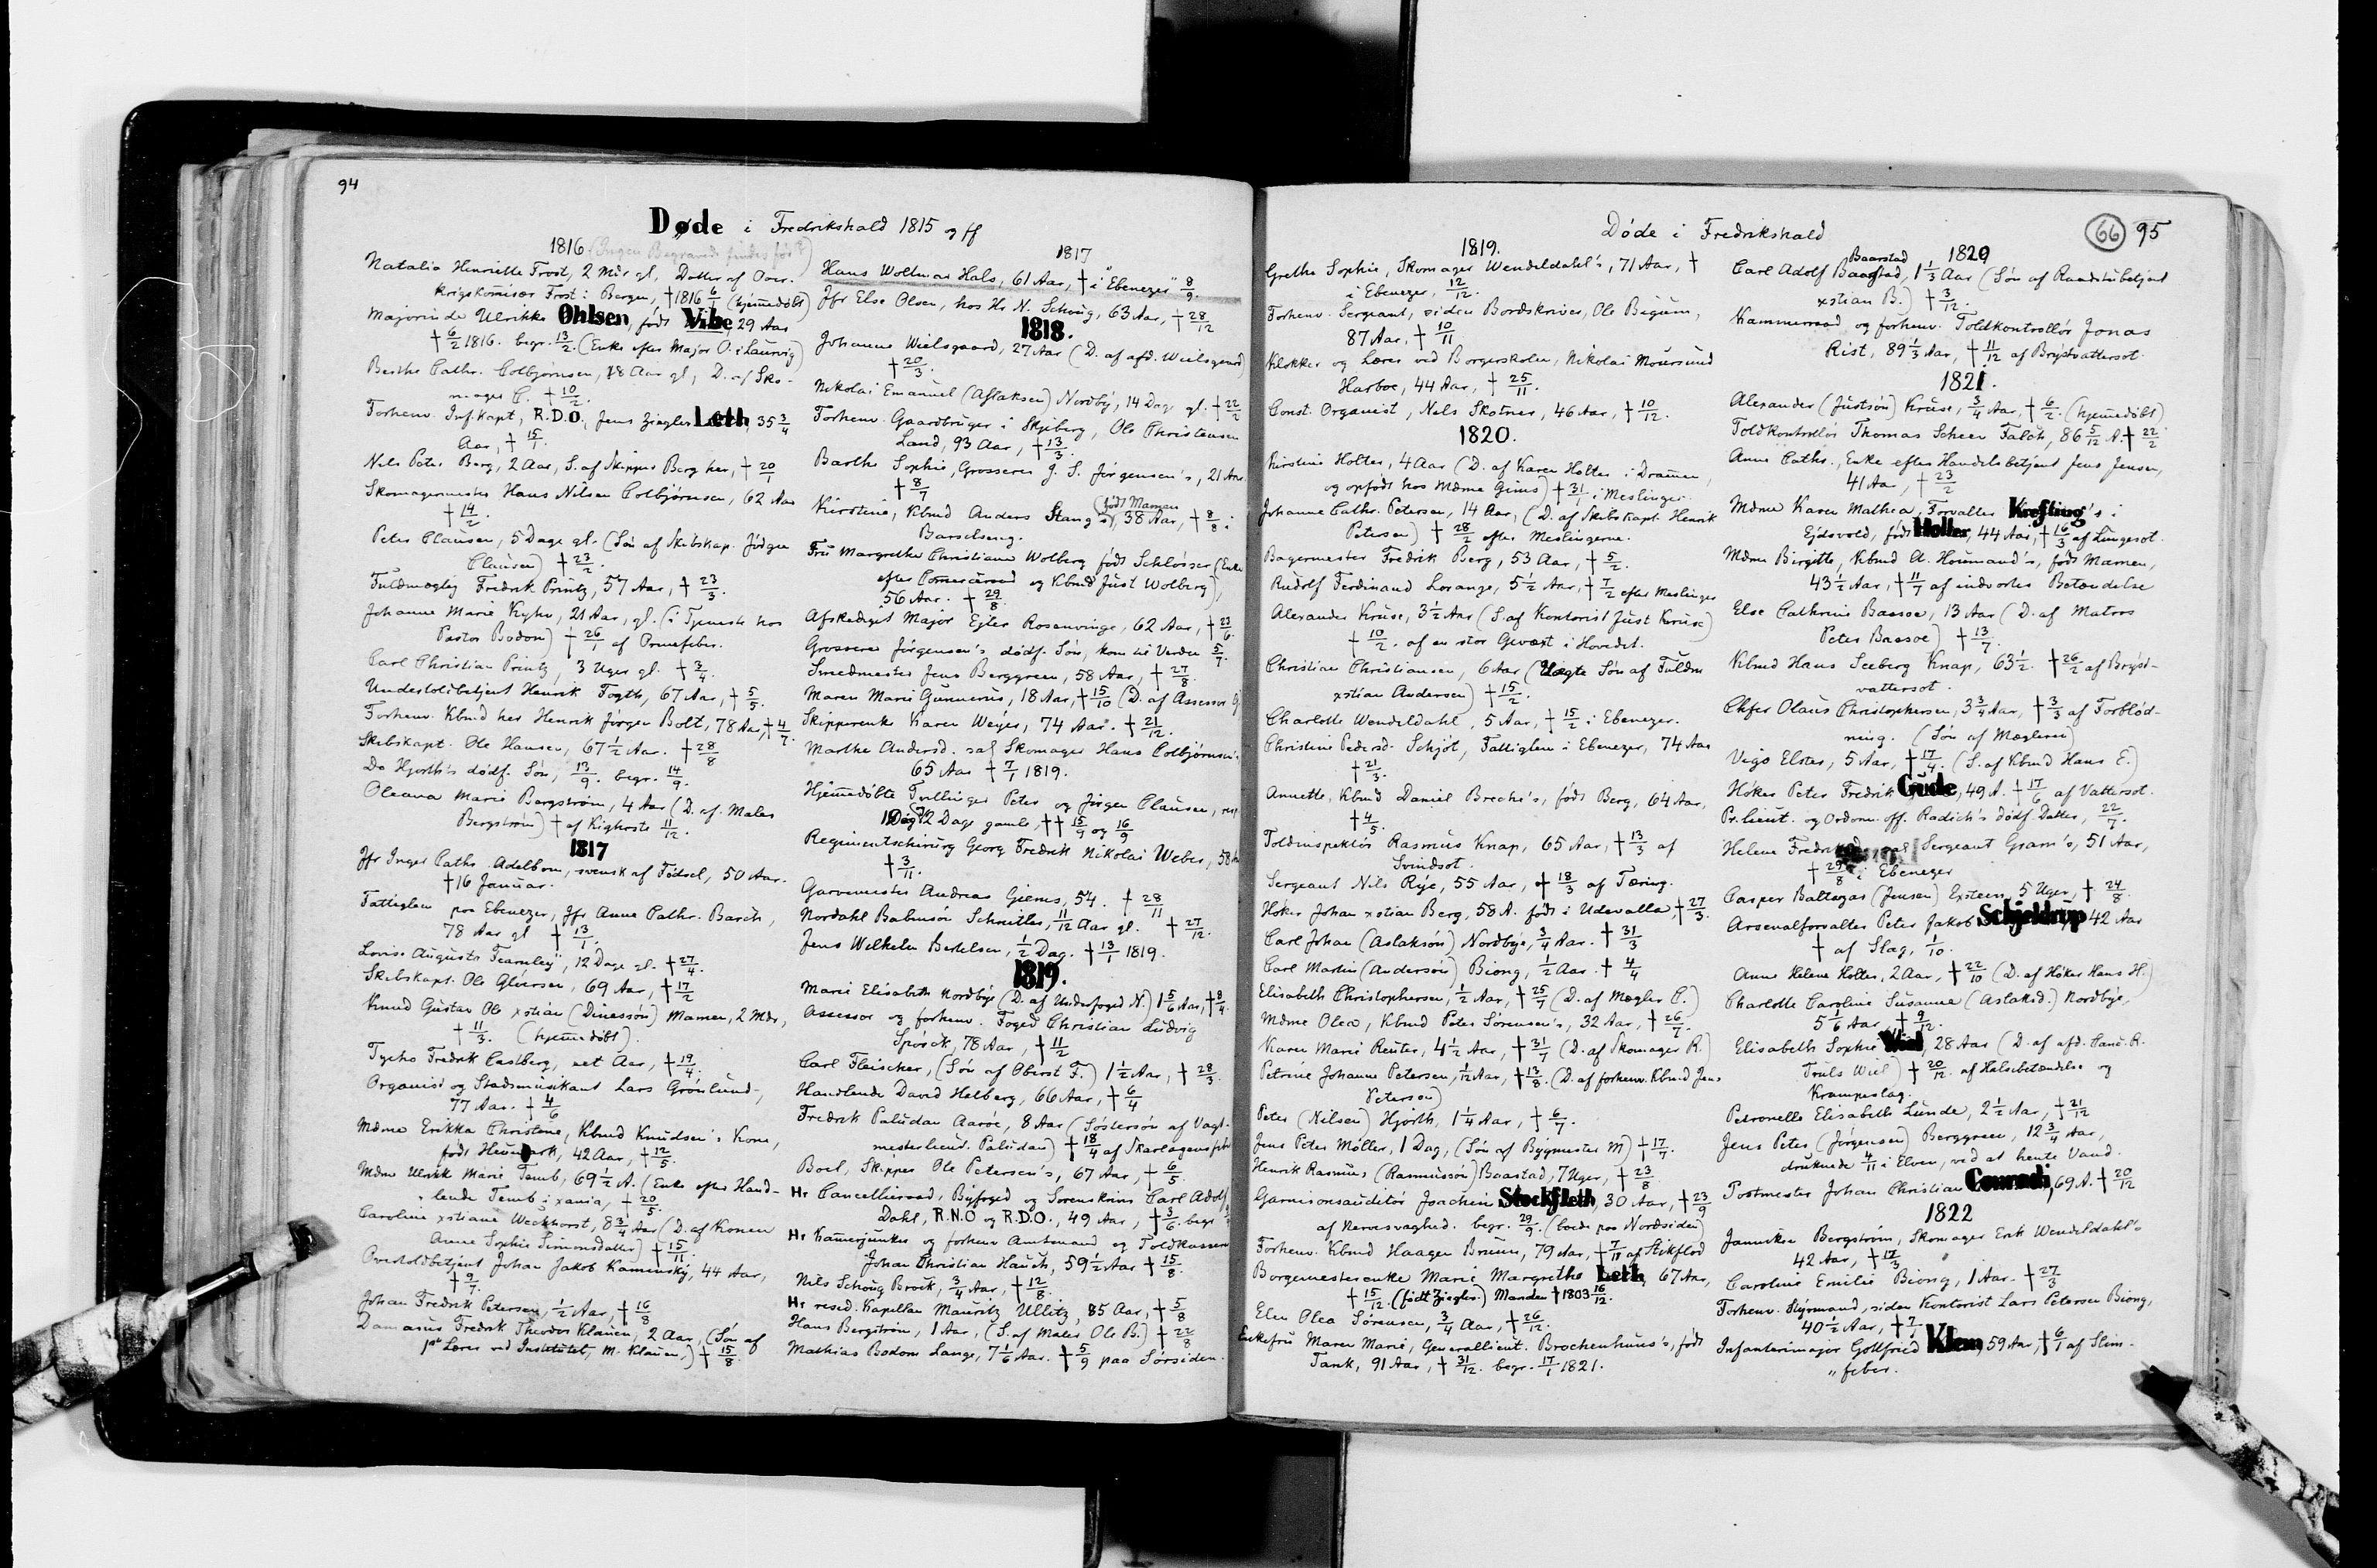 94
Døde i Fredrikshald 1815 og ff
1816 (Ingen Begravede findes før?)
Natalia Henriette Frost, 2 Mdr gl, Datter af Over-
krigskomisær Frost i Bergen, † 1816 6/1 (hjemmedøbt)
Majorinde Ulrikke Ohlsen, født Vibe 29 Aar
† 6/2 1816. begr. 13/2. (Enke efter Major O. i Laurvig)
Berthe Cathr. Colbjørnsen, 18 Aar gl, D. af Sko-
mager C. † 10/2.
Forhenv. Inf.kapt, R.D.O, Jens Ziegler Leth, 35 3/4
Aar, † 15/1.
Nils Peter Berg, 2 Aar, S. af Skipper Berg her, † 20/1
Skomagermester Hans Nilsen Colbjørnsen, 62 Aar
† 14/2.
Peter Clausen, 5 Dage gl. (Søn af Skibskap. Jørgen
Clausen) † 23/2.
Fuldmægtig Fredrik Printz, 57 Aar, † 23/3.
Johanne Marie Kyhn, 21 Aar, gl. (i Tjeneste hos
Pastor Bodom) † 26/1 af
Carl Christian Printz, 3 Uger gl. † 3/4.
Undertoldbetjent Henrik Fogth, 67 Aar, † 5/5.
Forhenv. Kbmd her Henrik Jørgen Bolt, 78 Aar, † 4/7.
Skibskapt. Ole Hansen, 67 1/2 Aar. † 28/8
Do Hjorth's dødf. Søn, 13/9. begr. 14/9.
Oleana Marie Bergstrøm, 4 Aar (D. af Maler
Bergstrøm) † af Kighoste 11/12.
1817
Jfr Inger Cathr. Adelborn, svensk af Fødsel, 50 Aar.
† 16 Januar.
Fattiglem paa Ebenezer, Jfr Anne Cathr. Barch,
78 Aar gl † 13/1.
Lovise Augusta Fearnley, 12 Dage gl. † 27/4.
Skibskapt. Ole Glüersen, 69 Aar, † 17/2
Knud Gustav Ole xstian (Dinessøn) Mamen, 2 Mdr,
† 11/3. (hjemmedøbt).
Tycho Fredrik Castberg, net Aar, † 19/4.
Organist og Stadsmusikant Lars Grønlund,
77 Aar. † 4/6
Mdme Erikka Christine, Kbmd Knudsen's Kone,
født 42 Aar, † 12/5.
Mdm Ulrikk Marie Temb, 69 1/2 A. (Enke efter Hand-
"lende Temb i xania, † 20/5.
Caroline xstiane Weckhorst, 8 3/4 Aar (D. af Konen
Anne Sophie Simonsdatter) † 15/11
Overtoldbetjent Johan Jakob Kaminsky, 44 Aar,
† 9/7.
Johan Fredrik Petersen, 1/2 Aar, † 16/8
Damasus Fredrik Theodor Klausen, 2 Aar, (Søn af
1ste Lærer ved Institutet, M. Klausen,) † 15/8.
1817
Hans Woltmar Hals, 61 Aar, † i "Ebenezer" 8/9.
Jfr Else Olsen, hos Hr N. Schoug, 63 Aar, † 28/12
1818.
Johanne Wielsgaard, 27 Aar (D. af afd. Wielsgaard)
† 20/3.
Nikolai Emanuel (Aslaksen) Nordby, 14 Dage gl. † 22/2
Forhenv. Gaardbruger i Skjeberg, Ole Christensen
Land, 93 Aar, † 13/3.
Barthe Sophie, Grosserer J. S. Jørgensen's, 21 Aar
† 8/7
(født Maman
Kirstine, Kbmd Anders Stang's, 38 Aar, † 8/8 i
Barselseng.
Fru Margrethe Christiane Wolberg født Schlösser (Enke
efter Comerceraad og Kbmd Just Wolberg),
56 Aar. † 29/8.
Afskediget Major Ejler Rosenvinge, 62 Aar, † 23/6.
Grosserer Jørgensen's dødf. Søn, kom til Verden 5/7.
Smedmester Jens Berggreen, 58 Aar, † 27/8.
Maren Marie Gunnerus, 18 Aar, † 15/10 (D. af Assessor G.
Skipperenke Karen Weyer, 74 Aar. † 21/12.
Marthe Andersd. sal. Skomager Hans Colbjørnsen's,
65 Aar † 7/1 1819.
Hjemmedøbte Tvillinger Peter og Jørgen Clausen, resp
1 Dag 12 Dage gamle, †† 15/9 og 16/9
Regimentschirurg Georg Fredrik Nikolai Weber, 58 A
† 3/11.
Garvemester Andreas Giems, 54. † 28/11
Nordahl Schnitler, 11/12 Aar gl. † 27/12.
Jens Wilhelm Bertelsen, 1/2 Dag. † 13/1 1819.
1819.
Marie Elisabeth Nordbye (D. af Underfoged N.) 1 5/6 Aar, † 8/4.
Assessor og forhenv. Foged Christian Ludvig
Spørck, 78 Aar, † 11/2
Carl Fleischer, (Søn af Oberst F.) 1 1/2 Aar, † 28/3.
Handlende David Helberg, 66 Aar, † 6/4
Fredrik Paludan Aarøe, 8 Aar (Søstersøn af Vagt-
mesterlieut. Paludan) † 18/4 af Skarlagensfeber
Boel, Skipper Ole Petersen's, 67 Aar, † 6/5.
Hr Cancelliraad, Byfoged og Sorenskriver Carl Adolf
Dahl, R.N.O og R.D.O., 49 Aar, † 3/6 begr
Hr Kamerjunker og forhenv Amtmand og Toldkasserer
Johan Christian Hauch, 59 1/2 Aar † 15/8.
Nils Schoug Brock, 3/4 Aar, † 12/8.
Hr resid. Kapellan Mauritz Ullitz, 85 Aar, † 5/8
Hans Bergstrøm, 1 Aar, (S. af Maler Ole B.) † 22/8
Mathias Bodom Lange, 7 1/6 Aar. † 5/9 paa Sørsiden.
Døde i Fredrikshald
66 95
1819.
Grethe Sophie, Skomager Wendeldahl's, 71 Aar, †
i Ebenezer, 12/12.
Forhenv. Sergeant, siden Bordskriver, Ole Bigum,
87 Aar, † 10/11
Klokker og Lærer ved Borgerskolen, Nikolai Moursund
Harboe, 44 Aar, † 25/11.
Const. Organist, Nels Skotner, 46 Aar, † 10/12.
1820.
Kirstine Holter, 4 Aar (D. af Karen Holter i Dramen,
og opfødt hos Mdme Gims) † 31/1 i Meslinger.
Johanne Cathr. Petersen, 14 Aar, (D. af Skibskapt. Henrik
Petersen) † 28/2 efter Meslingerne.
Bagermester Fredrik Berg, 53 Aar, † 5/2.
Rudolf Ferdinand Lorange, 5 1/2 Aar, † 7/2 efter Meslinger
Alexander Kruse, 3 1/2 Aar (S. af Kontorist Just Kruse)
† 10/2. af en stor Gevæxt i Hovedet.
Christian Christiansen, 6 Aar (Uægte Søn af Fuldm
xstian Andersen) † 15/2.
Charlotte Wendeldahl, 5 Aar, † 15/2 i Ebenezer.
Christine Pedersd. Schjøt, Fattiglem i Ebenezer, 74 Aar
† 21/3.
Annette, Kbmd Daniel Breche's, født Berg, 64 Aar,
† 4/5.
Toldinspektør Rasmus Knap, 65 Aar, † 13/3 af
Svindsot.
Sergeant Nils Rye, 55 Aar, † 18/3 af Tæring.
Høker Johan xstian Berg, 58 A. født i Udevalla, † 27/3.
Carl Johan (Aslaksøn) Nordbye, 3/4 Aar. † 31/3
Carl Martin (Andersøn) Biong, 1/2 Aar. † 4/4
Elisabeth Christophersen, 1/2 Aar, † 25/7 (D. af Mægler C.)
Mdme Olea, Kbmd Peter Sørensen's, 32 Aar, † 26/7.
Karen Marie Reuter, 4 1/2 Aar, † 31/7 (D. af Skomager R.)
Petrine Johanne Petersen, 1/12 Aar, † 13/8. (D. af forhenv. Kbmd Jens
Petersen)
Peter (Nilsen) Hjorth, 1 1/4 Aar, † 6/7.
Jens Peter Møller, 1 Dag, (Søn af Bygmester M) † 17/7.
Henrik Rasmus (Rasmussøn) Baastad, 7 Uger, † 23/8
Garnisonsauditør Joachim Stockfleth, 30 Aar, † 23/9
af Nervesvaghed. begr. 29/9. (boede paa Nordsiden)
Forhenv. Kbmd Haagen Bruun, 79 Aar, † 7/11 af Stikflod
Borgermesterenke Marie Margrethe Leth, 67 Aar,
† 15/12. (født Ziegler.) Manden † 1803 16/12.
Elen Olea Sørensen, 3/4 Aar, † 26/12.
Enkefru Maren Marie, Generallieut. Brochenhuus's, født
Tank, 91 Aar, † 31/12. begr. 17/1 1821.
1820
Baarstad
Carl Adolf Baastad, 1 1/3 Aar (Søn af Raadstubetjent
xstian B.) † 3/12.
Kammerraad og forhenv. Toldkontrollør Jonas
Rist, 89 1/3 Aar, † 11/12 af Brystvattersot.
1821.
Alexander (Justsøn) Kruse, 3/4 Aar, † 6/2. (hjemmedøbt)
Toldkontrollør Thomas Scheen Falch, 86 5/12 A. † 22/2
Anne Cathr., Enke efter Handelsbetjent Jens Jensen,
41 Aar, † 23/2
Mdme Karen Mathea, Forvalter Krefting's i
Ejdsvold, født Holter, 44 Aar, † 16/3 af Lungesot.
Mdme Birgitte, Kbmd A. Houmand's, født Mamen,
43 1/2 Aar, † 11/7 af indvortes Betændelse
Else Cathrine Baasøe, 13 Aar (D. af Matros
Peter Baasøe) † 13/7.
Kbmd Hans Seeberg Knap, 63 1/2. † 26/2 af Bryst-
vattersot.
Olaus Christophersen, 3 3/4 Aar, † 3/3 af Forblød-
ning. (Søn af Mægleren)
Vigo Elster, 5 Aar, † 17/4. (S. af Kbmd Hans E.)
Høker Peter Fredrik Gude, 49 A. † 17/6 af Vattersot.
Pr. lieut. og Ordonn. off. Radich's dødf. Datter, 22/7.
Helene sal Sergeant Gram's, 51 Aar,
† 29/8 i Ebenezer
Casper Baltazar (Jensen) Exsteen, 5 Uger, † 24/8.
Arsenalforvalter Peter Jakob Schjeldrup, 42 Aar
† af Slag, 1/10.
Anne Helene Holter, 2 Aar, † 22/10 (D. af Høker Hans H.)
Charlotte Caroline Susanne (Aslaksd.) Nordbye,
5 1/6 Aar, † 9/12.
Elisabeth Sophie Wiel, 28 Aar (D. af afd. Canc. R.
Truls Wiel) † 20/12. af Halsbetændelse og
Krampeslag.
Petronelle Elisabeth Lunde, 2 1/2 Aar, † 21/12
Jens Peter (Jørgensen) Berggreen, 12 3/4 Aar,
druknede 4/11 i Elven, ved at hente Vand.
Postmester Johan Christian Conradi, 69 A. † 20/12
1822
Jannikke Bergstrøm, Skomager Erik Wendeldahl's
42 Aar, † 17/3
Caroline Emilie Biong, 1 Aar. † 27/3
Forhenv. Styrmand, siden Kontorist Lars Petersen Biong,
40 1/2 Aar, † 7/7
Infanterimajor Gottfried Klem, 59 Aar, † 6/1 af Slim-
"feber.